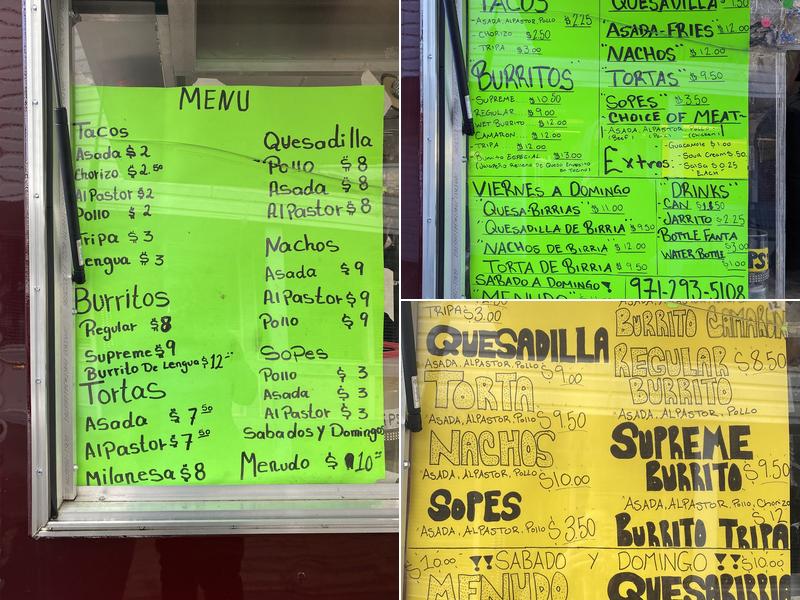 MENU
Tacos
Asada $2
Chorizo $2.50
Al Pastor $2
Pollo $2
Tripa $3
Lengua $3
Burritos
Regular $8
Supreme $9
Burrito De Lengua $12
Tortas
Asada $7 50
Al Pastor $7 50
Milanesa $8
Quesadilla
Pollo $8
Asada $8
Al Pastor $8
Nachos
Asada $9
Al Pastor $9
Pollo $9
Sopes
Pollo $3
Asada $3
Al Pastor $3
Sabados y Domingo
Menudo $10
TACOS
-ASADA, ALPASTOR, POLLO $2.25
-CHORIZO $2.50
-TRIPA $3.00
BURRITOS
-SUPREME $10.50
REGULAR $9.00
WET BURRITO $12.00
CAMARON $12.00
-TRIPA $12.00
-BURRITO ESPECIAL $13.00
QUESADILLA
"ASADA-FRIES" $12.00
"NACHOS" $12.00
"TORTAS" $9.50
"SOPES" $3.50
-CHOICE OF MEAT-
-ASADA, ALPASTOR, POLLO
Extras:
-Guacamole $1.00
-Sour Cream $.50
-Salsa $0.25
EACH
VIERNES A DOMINGO
"QUESA-BIRRIAS" $11.00
"QUESADILLA DE BIRRIA $9.50
"NACHOS DE BIRRIA" $12.00
TORTA DE BIRRIA $9.50
SABADO A DOMINGO
"MENUDO"
"DRINKS"
CAN $1.50
JARRITO $2.25
BOTTLE FANTA
$3.00
WATER BOTTLE
$1.00
971-293-5108
TRIPA $3.00
QUESADILLA
ASADA, ALPASTOR, Pollo $9.00
TORTA
ASADA, ALPASTOR, Pollo $9.50
NACHOS
ASADA, ALPASTOR, Pollo $10.00
SOPES
ASADA, ALPASTOR, Pollo $3.50
BURRITO CAMARON
REGULAR $8.50
BURRITO
ASADA, ALPASTOR, Pollo
SUPREME
BURRITO $9.50
ASADA, ALPASTOR, Pollo, Chorizo
$12
BURRITO TRIPA
$10.00 !! SABADO Y DOMINGO !! $10.00
MENUDO QUESABIRRIA